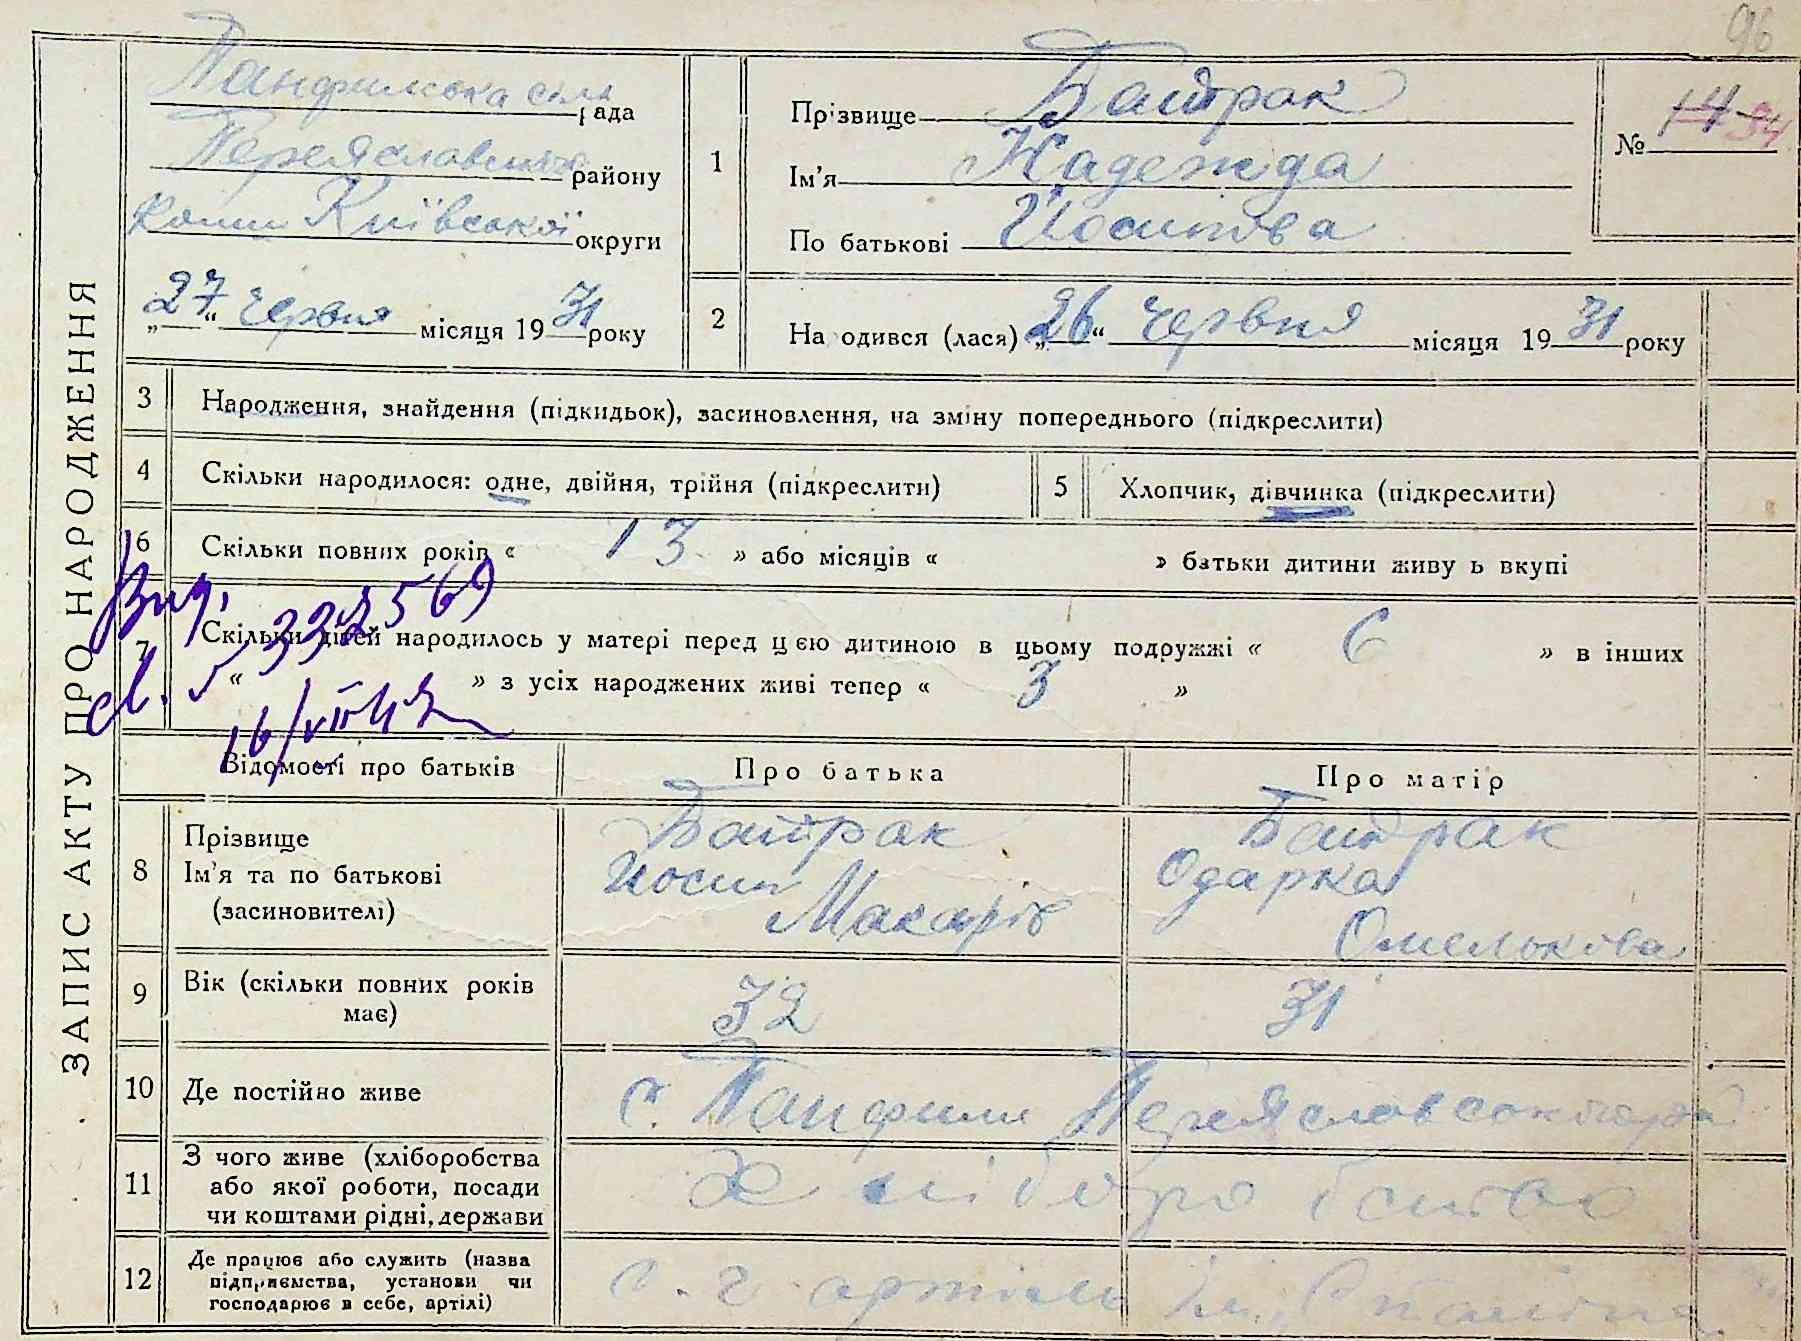 96
ЗАПИС АКТУ ПРО НАРОДЖЕННЯ
Панфилська сіль рада
Переяславського району
Київської округи
„27“ червня місяця 1931 року
1
Прізвище Байрак
Ім'я Надежда
По батькові Йосипова
№ 14 94
2
Народився (лася) „26“ червня місяця 1931 року
3 Народження, знайдення (підкидьок), засиновлення, на зміну попереднього (підкреслити)
4 Скільки народилося: одне, двійня, трійня (підкреслити)
5 Хлопчик, дівчинка (підкреслити)
6 Скільки повних років « 13 » або місяців « » батьки дитини живуть вкупі
Вид.
332569
7 Скільки дітей народилось у матері перед цією дитиною в цьому подружжі « 6 » в інших
« » з усіх народжених живі тепер « 3 »
16/VII
Відомості про батьків
Про батька
Про матір
8 Прізвище
Ім'я та по батькові
(засиновителі)
Байрак
Йосип
Макарів
Байрак
Одарка
Омелькова
9 Вік (скільки повних років
має)
32
31
10 Де постійно живе
с. Панфили Переяславського
11 З чого живе (хліборобства
або якої роботи, посади
чи коштами рідні, держави
Хліборобство
12 Де працює або служить (назва
підприємства, установи чи
господарює в себе, артілі)
с. г артіль ім. Сталіна